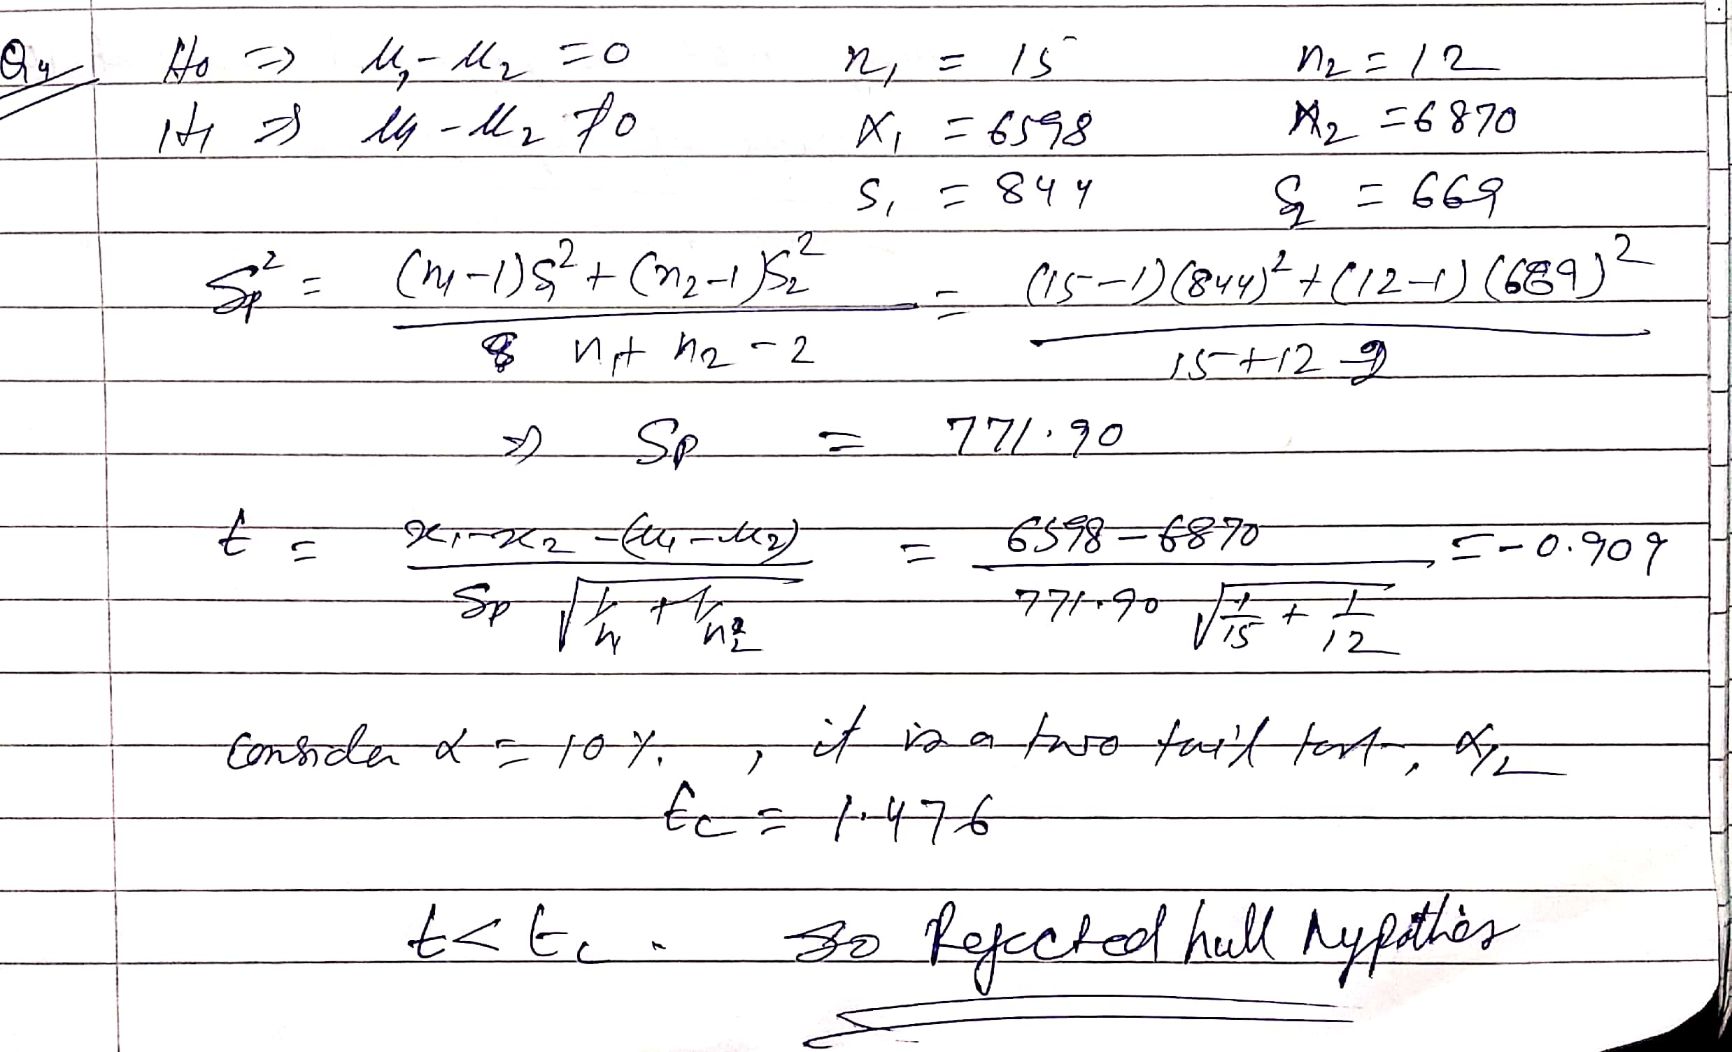 Q4 H0 ⇒ μ1 - μ2 = 0 n1 = 15 n2 = 12
H1 ⇒ μ1 - μ2 ≠ 0 x1 = 6598 x2 = 6870
S1 = 844 S2 = 669
Sp² = (n1-1)S1² + (n2-1)S2² / n1 + n2 - 2 = (15-1)(844)² + (12-1)(669)² / 15+12-2
⇒ Sp = 771.90
t = x1-x2 - (μ1-μ2) / Sp √(1/n1 + 1/n2) = 6598-6870 / 771.90 √(1/15 + 1/12) = -0.909
Consider α = 10%. , it is a two tail test, α/2
tc = 1.476
t < tc. so Rejected null hypothes